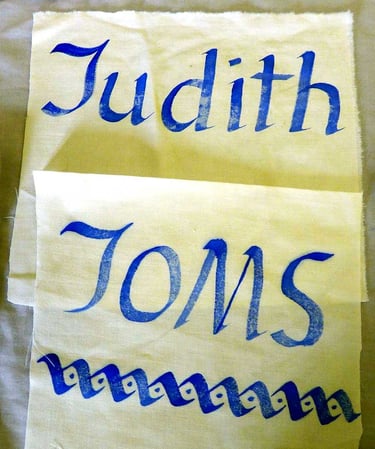 Judith
TOMS